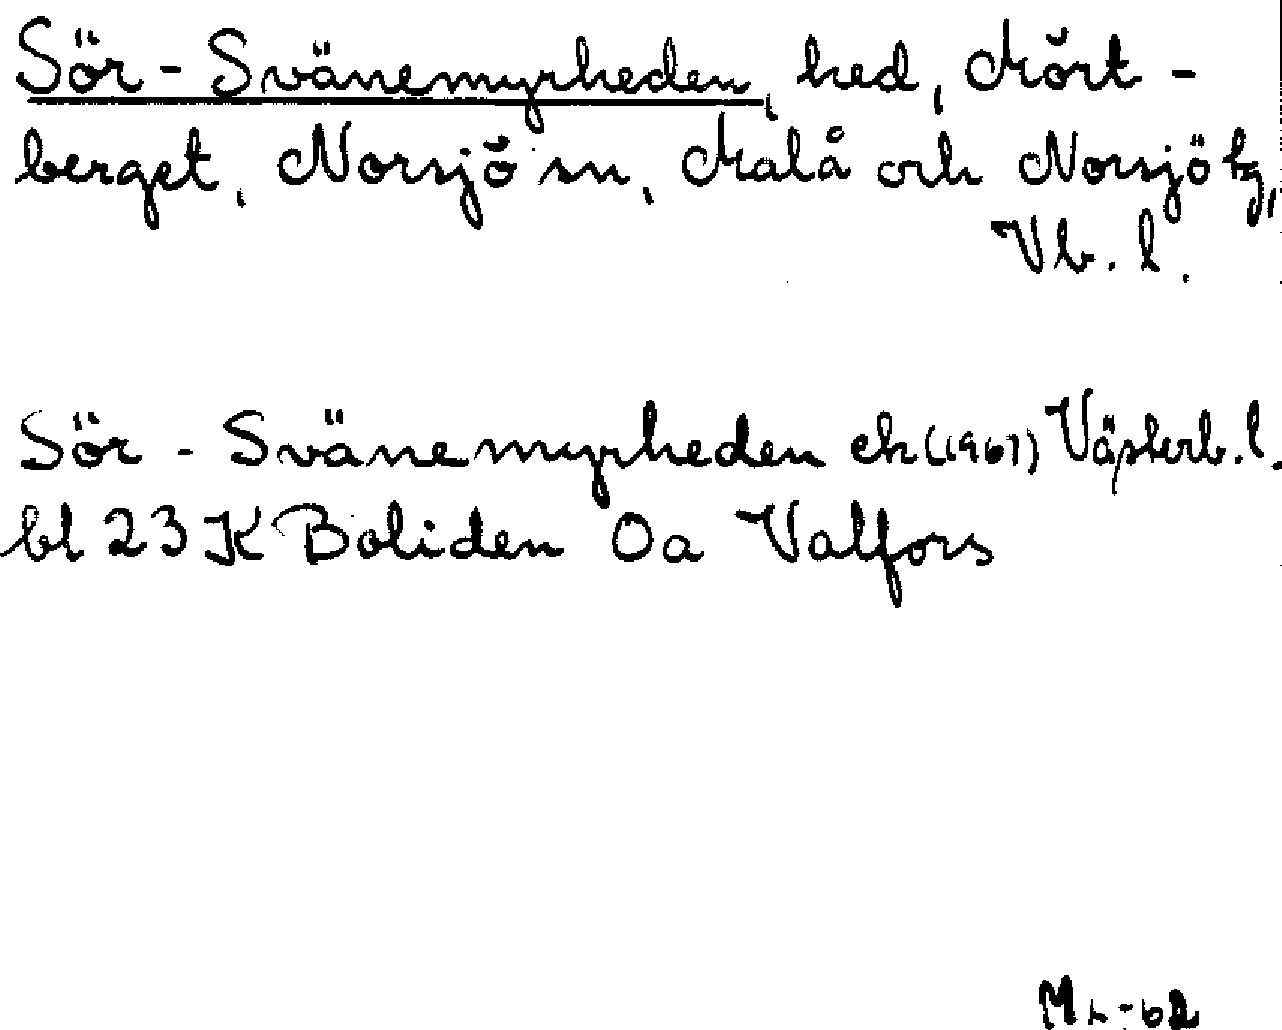 Sör-Svänemyrheden, hed, Mört-
berget, Norsjö sn, Malå och Norsjö tg,
Vb. l.
Sör-Svänemyrheden ek (1961) Västerb. l.
bl 23 K Boliden Oa Valfors